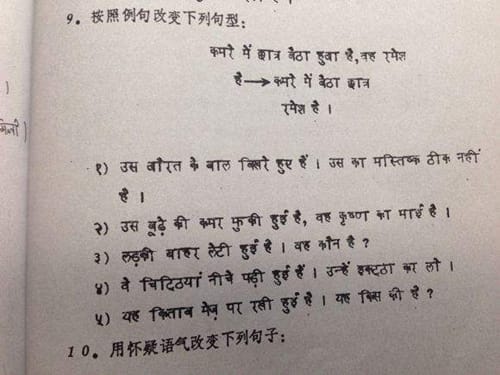 9. 按照例句改变下列句型：
कमरे में छात्र बैठा हुवा है, वह रमेश
है→कमरे में बैठा छात्र
रमेश है ।
१) उस औरत के बाल बिखरे हुए हैं । उस का मस्तिष्क ठीक नहीं
है ।
२) उस बूढ़े की कमर झुकी हुई है, वह कृष्ण का भाई है ।
३) लड़की बाहर लेटी हुई है । वह कौन है ?
४) वे चिट्ठियां नीचे पड़ी हुई हैं । उन्हें इकट्ठा कर लो ।
५) यह किताब मेज़ पर रखी हुई है । यह किस की है ?
10. 用怀疑语气改变下列句子：